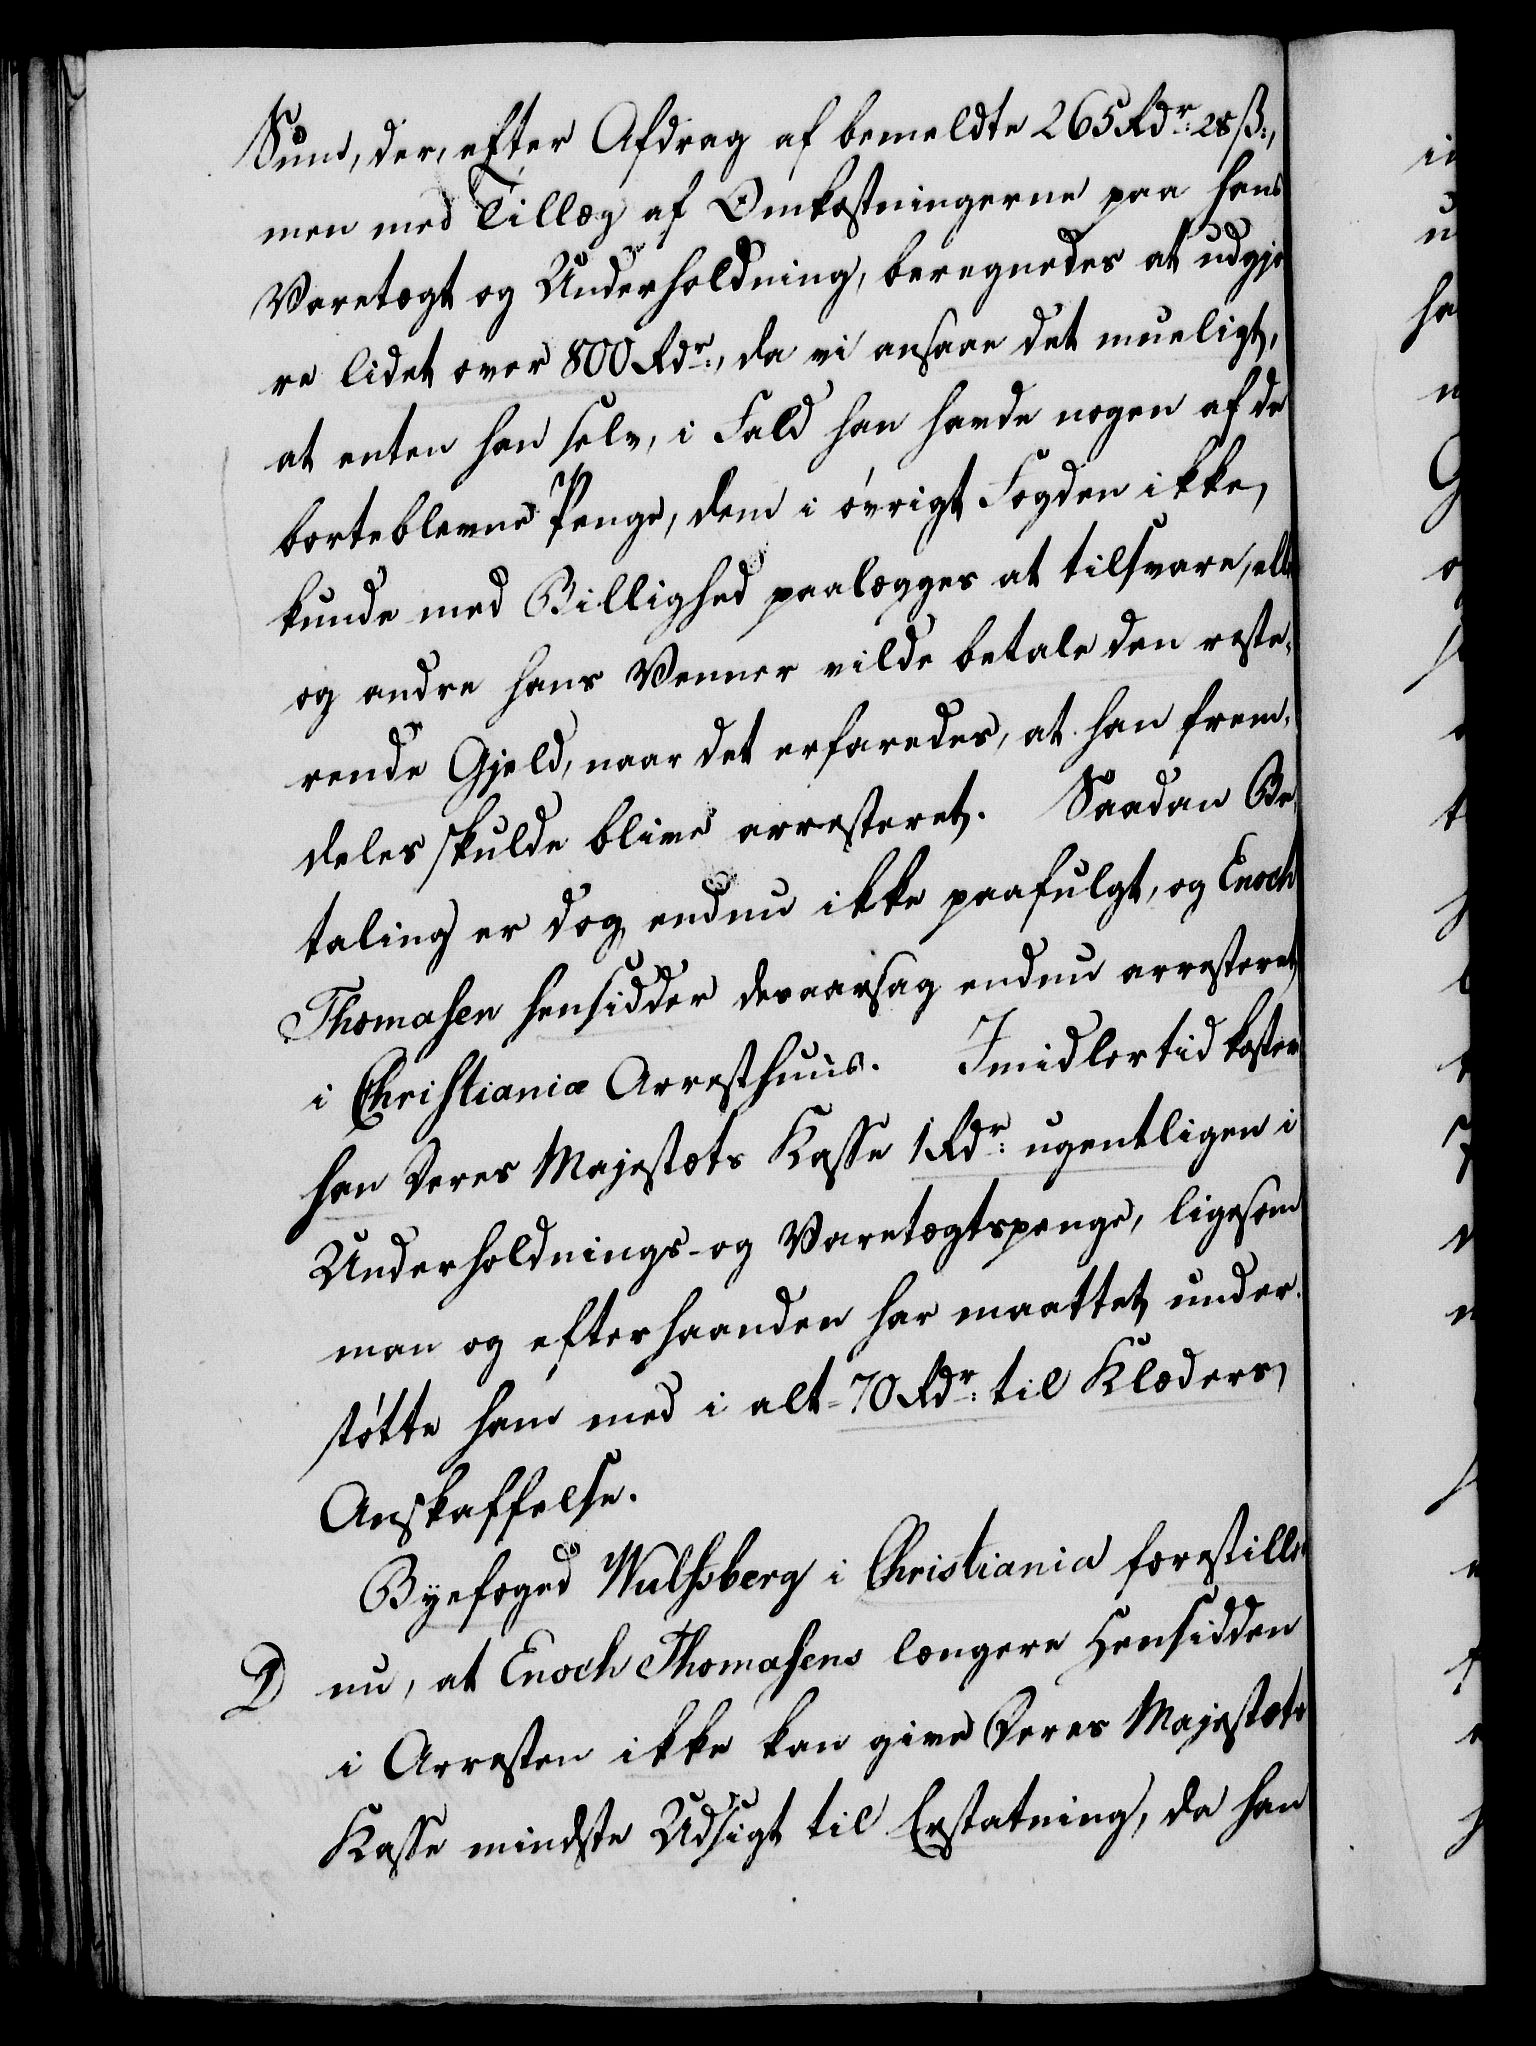 Sum, der, efter Afdrag af bemeldte 265 Rdr: 28 ß:,
men med Tillæg af Omkostningerne paa hans
Varetægt og Underholdning, beregnedes at udgjø
re lidet over 800 Rdr:, da vi ansaae det mueligt,
at enten han selv, i Fald han havde nogen af de
borteblevne Penge, dem i øvrigt Fogden ikke
kunde med Billighed paalægges at tilsvare, elle
og andre hans Venner vilde betale den reste-
rende Gjeld, naar det erfaredes, at han frem-
deles skulde blive arresteret. Saadan Be
taling er dog endnu ikke paafulgt, og Enoch
Thomasen hensidder desaarsag endnu arresteret
i Christiania Arresthuus. Imidlertid koster
han Deres Majestæts Kasse 1 Rdr: ugentligen i
Underholdnings- og Varetægtspenge, ligesom
man og efterhaanden har maattet under-
støtte ham med i alt 70 Rdr: til Klæders
Anskaffelse.
Byefoged Wulfsberg i Christiania forestille
D nu, at Enoch Thomasens længere Hensidden
i Arresten ikke kan give Deres Majestæts
Kasse mindste Udsigt til Erstatning, da han